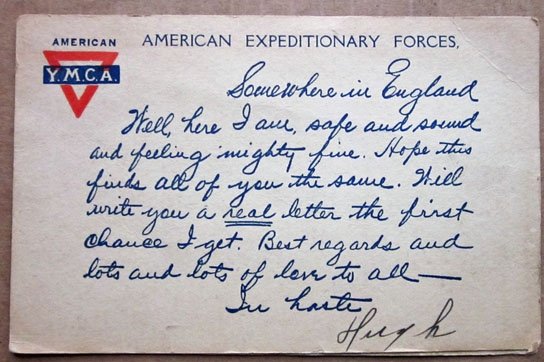 AMERICAN
Y.M.C.A.
AMERICAN EXPEDITIONARY FORCES,
Somewhere in England
Well, here I am, safe and sound
and feeling mighty fine. Hope this
finds all of you the same. Will
write you a real letter the first
chance I get. Best regards and
lots and lots of love to all —
In haste
Hugh